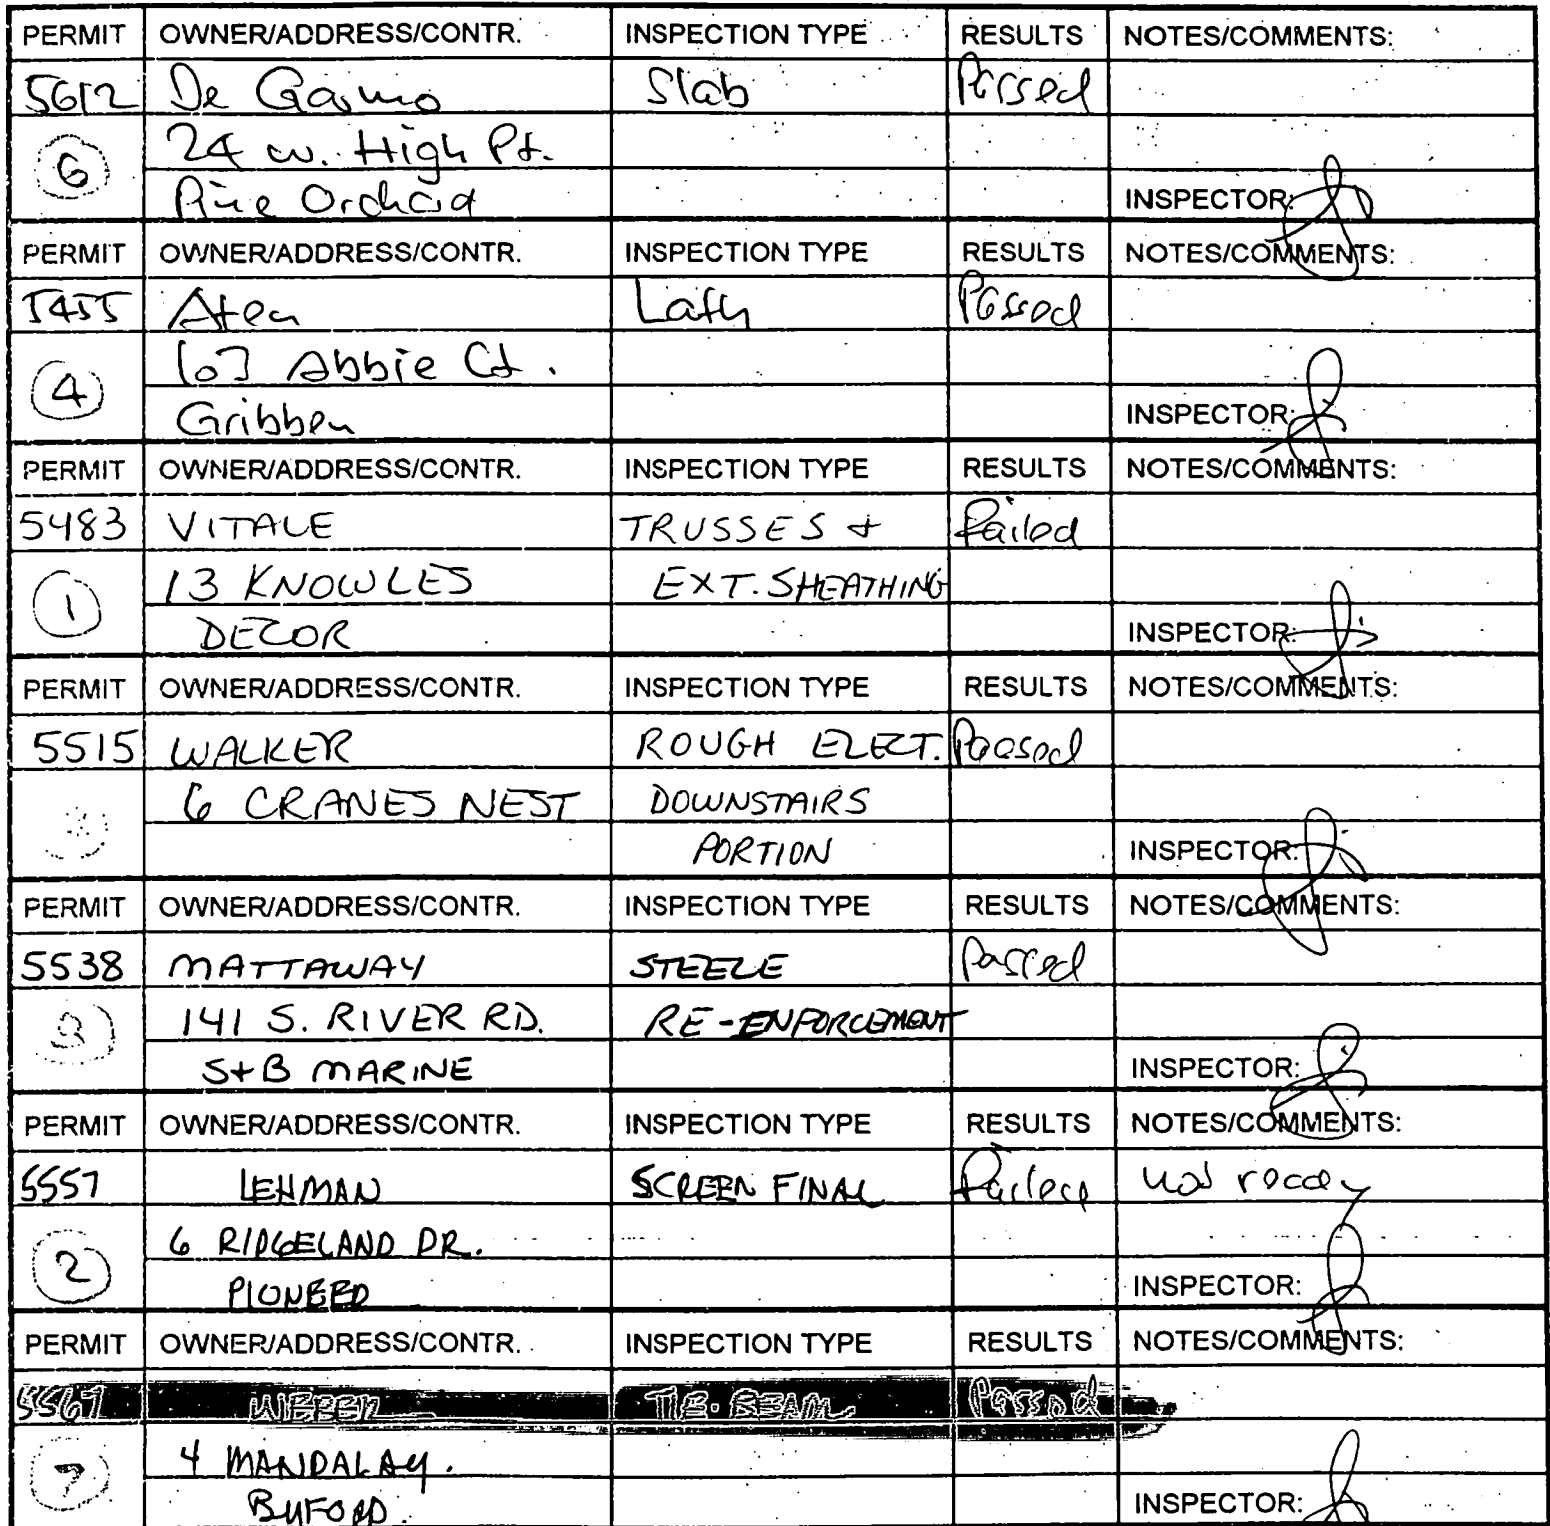 PERMIT OWNER/ADDRESS/CONTR. INSPECTION TYPE RESULTS NOTES/COMMENTS:
5612 De Garmo Slab Passed
6 24 W. High Pt.
Pine Orchard INSPECTOR:
PERMIT OWNER/ADDRESS/CONTR. INSPECTION TYPE RESULTS NOTES/COMMENTS:
5455 Aten Lath Passed
4 107 Abbie Ct.
Gribben INSPECTOR:
PERMIT OWNER/ADDRESS/CONTR. INSPECTION TYPE RESULTS NOTES/COMMENTS:
5483 VITALE TRUSSES + Failed
1 13 KNOWLES EXT. SHEATHING
DECOR INSPECTOR:
PERMIT OWNER/ADDRESS/CONTR. INSPECTION TYPE RESULTS NOTES/COMMENTS:
5515 WALKER ROUGH ELECT. Passed
6 CRANES NEST DOWNSTAIRS
PORTION INSPECTOR:
PERMIT OWNER/ADDRESS/CONTR. INSPECTION TYPE RESULTS NOTES/COMMENTS:
5538 MATTAWAY STEELE Passed
141 S. RIVER RD. RE-ENFORCEMENT
S+B MARINE INSPECTOR:
PERMIT OWNER/ADDRESS/CONTR. INSPECTION TYPE RESULTS NOTES/COMMENTS:
5557 LEHMAN SCREEN FINAL Failed not ready
2 6 RIDGELAND DR.
PIONEER INSPECTOR:
PERMIT OWNER/ADDRESS/CONTR. INSPECTION TYPE RESULTS NOTES/COMMENTS:
5567 WEBER TIE-BEAM Passed
7 4 MANDALAY.
BUFORD. INSPECTOR: